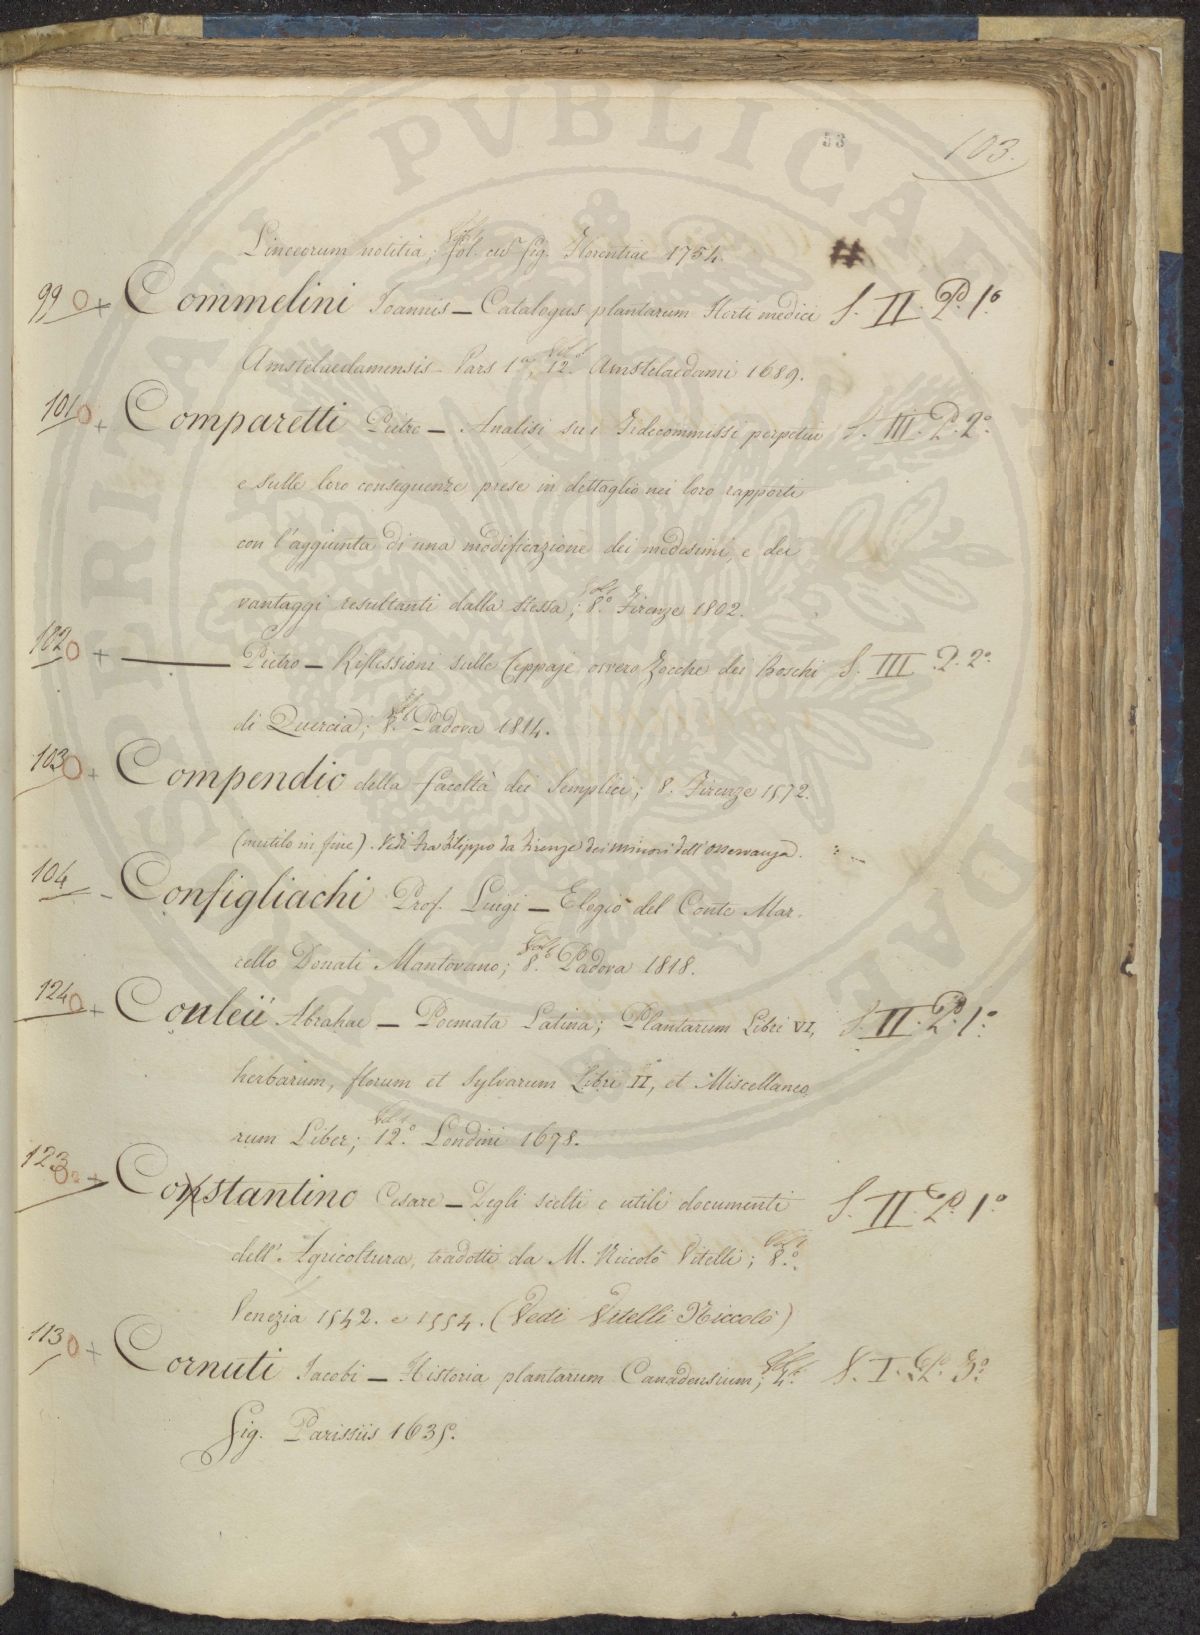 53
103.
Linceorum notitia; fol. cũ fig. Florentiae 1754.
99 O + Commelini Joannis — Catalogus plantarum Horti medici S. II. P. 1º
Amstelaedamensis - Pars 1ª; Vol. 1 12º Amstelaedami 1689.
101 O + Comparetti Pietro — Analisi sui Fidecommissi perpetui S. III. P. 2º
e sulle loro conseguenze prese in dettaglio nei loro rapporti
con l'aggiunta di una modificazione dei medesimi, e dei
vantaggi resultanti dalla stessa; Vol. 1 8º Firenze 1802.
102 O + —— Pietro — Riflessioni sulle Ceppaje ovvero Zocche dei Boschi S. III P. 2º
di Quercia; 8º Padova 1814.
103 O + Compendio della facoltà dei Semplici; 8. Firenze 1572.
(mutilo in fine). Vedi Fra Filippo da Firenze dei minori dell'osservanza.
104 - Configliachi Prof. Luigi — Elogio del Conte Mar-
cello Donati Mantovano; Vol. 1 8º Padova 1818.
124 O + Couleii Abrahae — Poemata Latina; Plantarum Libri VI, S. II. P. 1º
herbarum, florum et Sylvarum Libri II, et Miscellaneo
rum Liber; Vol. 1 12º Londini 1678.
123 O + Constantino Cesare — Degli scelti e utili documenti S. II. P. 1º
dell'Agricoltura, tradotti da M. Niccolò Vitelli; Vol. 1 8º
Venezia 1542. e 1554. (Vedi Vitelli Niccolò)
113 O + Cornuti Jacobi — Historia plantarum Canadensium; Vol. 1 4º S. I. P. 3º
fig. Parissiis 1635.
PVBLICAE